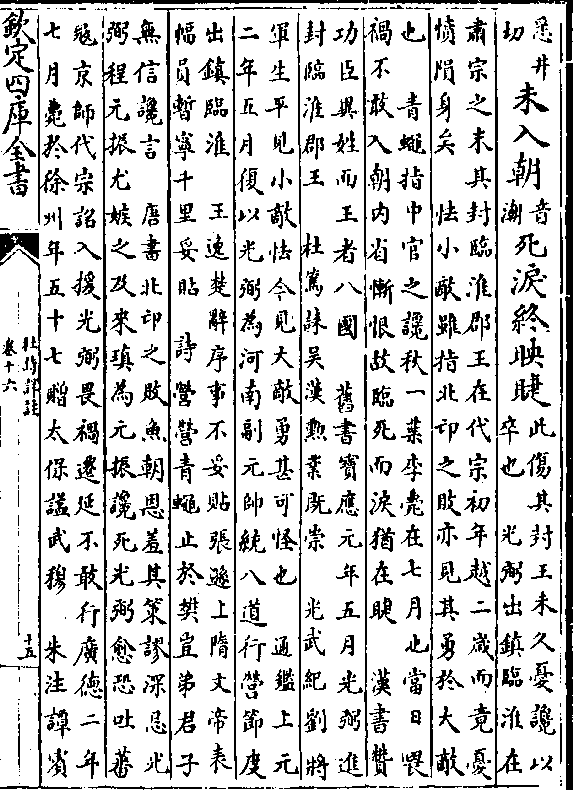 悉井
切
未入朝
音
潮
死淚終映睫
此傷其封王未久憂讒以
卒也 光弼出鎮臨淮在
肅宗之末其封臨淮郡王在代宗初年越二歲而竟憂
憤隕身矣 怯小敵雖指北邙之敗亦見其勇於大敵
也 青蠅指中官之讒秋一葉李薨在七月也當日畏
禍不敢入朝内省慚恨故臨死而淚猶在睫 漢書贊
功臣異姓而王者八國 舊書寳應元年五月光弼進
封臨淮郡王 杜篤誄吳漢勲業既崇 光武紀劉將
軍生平見小敵怯今見大敵勇甚可怪也 通鑑上元
二年五月復以光弼為河南副元帥統八道行營節度
出鎮臨淮 王逸楚辭序事不妥貼張遜上隋文帝表
幅員暫寧千里妥貼 詩營營青蠅止於樊豈弟君子
無信讒言 唐書北邙之敗魚朝恩羞其策謬深忌光
弼程元振尤嫉之及來瑱為元振讒死光弼愈恐吐蕃
寇京師代宗詔入援光弼畏禍遷延不敢行廣德二年
七月薨於徐州年五十七贈太保諡武穆 朱注譚賔
欽定四庫全書
杜詩詳註
卷十六
十五